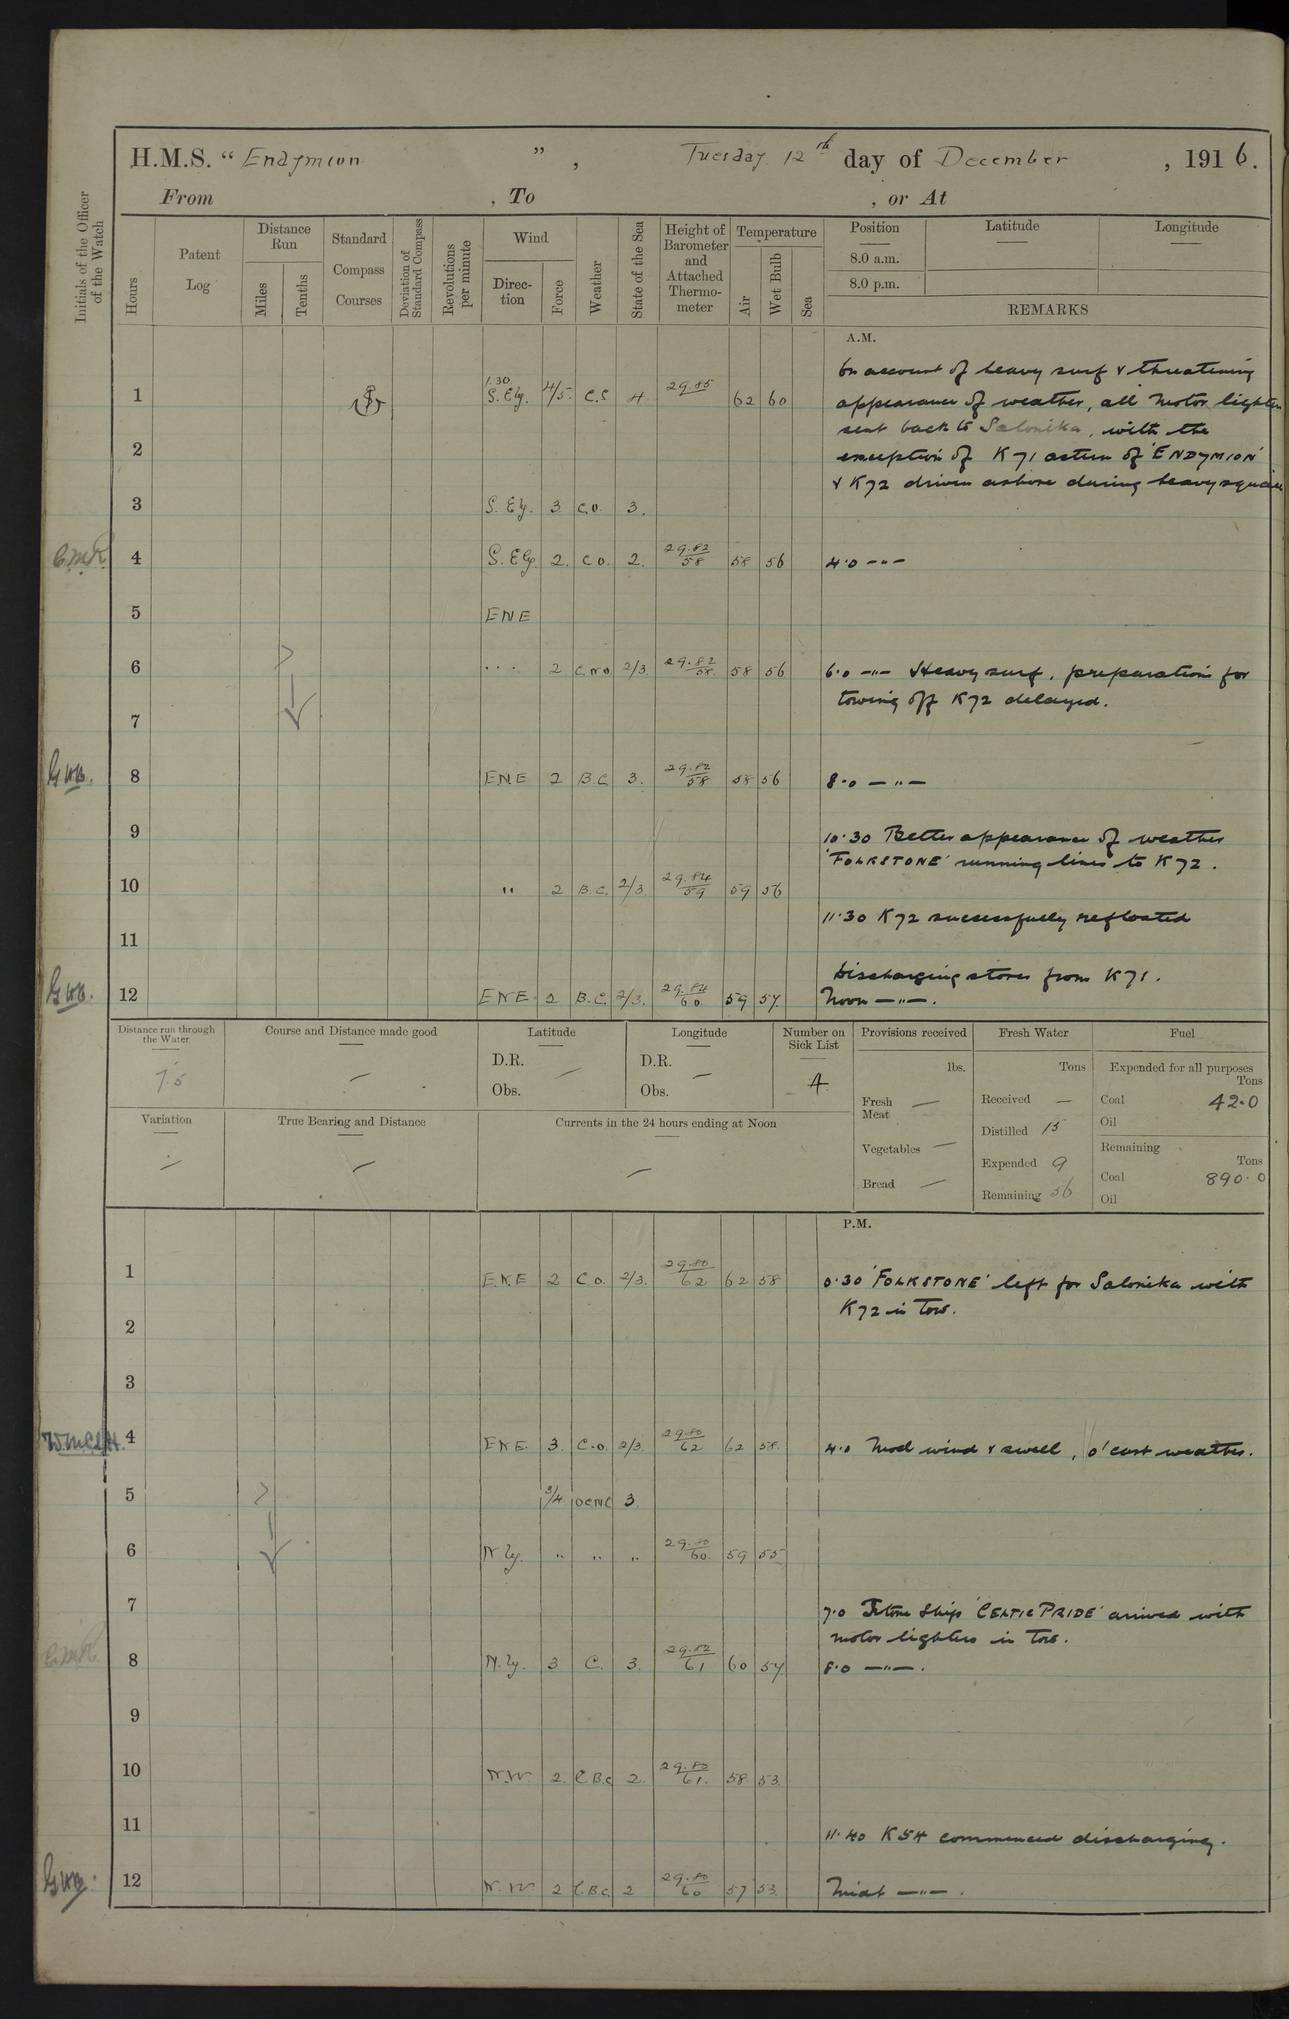 H.M.S. “Endymion ” , Tuesday 12th day of December , 1916.
From , To , or At
Initials of the Officer of the Watch
Hours
Patent Log
Distance Run
Miles
Tenths
Standard Compass Courses
Deviation of Standard Compass
Revolutions per minute
Wind
Direc-tion
Force
Weather
State of the Sea
Height of Barometer and Attached Thermo-meter
Temperature
Air
Wet Bulb
Sea
Position Latitude Longitude
8.0 a.m.
8.0 p.m.
REMARKS
A.M.
On account of heavy surf & threatening
1 1.30 S. Ely. 4/5 4 29.85 62 60 appearance of weather, all Motor lighters
sent back to Salonika, with the
2 exception of K71 astern of 'ENDYMION'
& K72 driven ashore during heavy squall
3 S. Ely. 3 C.O. 3.
4 S. Ely. 2. C O. 2. 29.82/58 58 56 4.0 —"—
5 ENE
6 . . . 2 2/3. 29.82/58 58 56 6.0 —"— Heavy surf, preparations for
towing off K72 delayed.
7
GWB. 8 ENE 2 B.C. 3. 29.82/58 58 56 8.0 —"—
9 10.30 Better appearance of weather
'FOLKSTONE' running lines to K72.
10 " 2 B.C. 2/3. 29.84/59 59 56
11.30 K72 successfully refloated
11
Discharging stores from K71.
GWB. 12 ENE 2 B.C. 2/3. 29.84/60 59 57 Noon —"—.
Distance run through the Water 7.5
Course and Distance made good —
Latitude D.R. — Obs.
Longitude D.R. — Obs.
Number on Sick List 4
Provisions received lbs.
Fresh Meat —
Vegetables —
Bread —
Fresh Water Tons
Received —
Distilled 15
Expended 9
Remaining 56
Fuel
Expended for all purposes Tons
Coal 42.0
Oil
Remaining Tons
Coal 890.0
Oil
Variation —
True Bearing and Distance —
Currents in the 24 hours ending at Noon —
P.M.
1 E.N.E 2 C O. 2/3. 29.80/62 62 58 0.30 'FOLKSTONE' left for Salonika with
2 K72 in Tow.
3
4 ENE. 3. C.O. 2/3. 29.80/62 62 58. 4.0 Mod wind & swell, o'cast weather.
5 3/4 3
6 N'ly. " " " 29.80/60. 59 55
7 7.0 Store Ship 'CELTIC PRIDE' arrived with
motor lighters in Tow.
8 N.ly. 3. C. 3. 29.82/61 60 57 8.0 —"—.
9
10 N.W. 2. C.B.C. 2. 29.82/61. 58 53.
11 11.40 K54 commenced discharging.
GWB. 12 N.W 2 C.B.C. 2 29.80/60 57 53 Midt —"—.